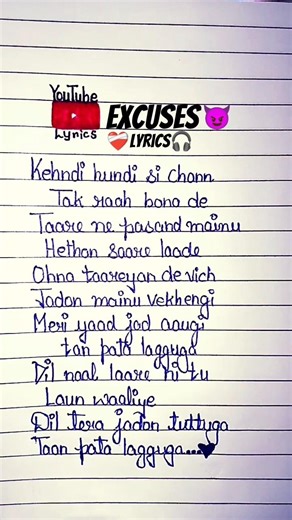 YouTube
Lyrics
EXCUSES😈
❤️‍🩹LYRICS🎧
Kehndi hundi si chann
Tak raah bana de
Taare ne pasand mainu
Hethan saare laade
Ohna taareyan de vich
Jadon mainu vekhengi
Meri yaad jad aaugi
tan pata lagguga
Dil naal laare hi tu
Laun waaliye
Dil tera jadon tuttuga
Taan pata lagguga...♥